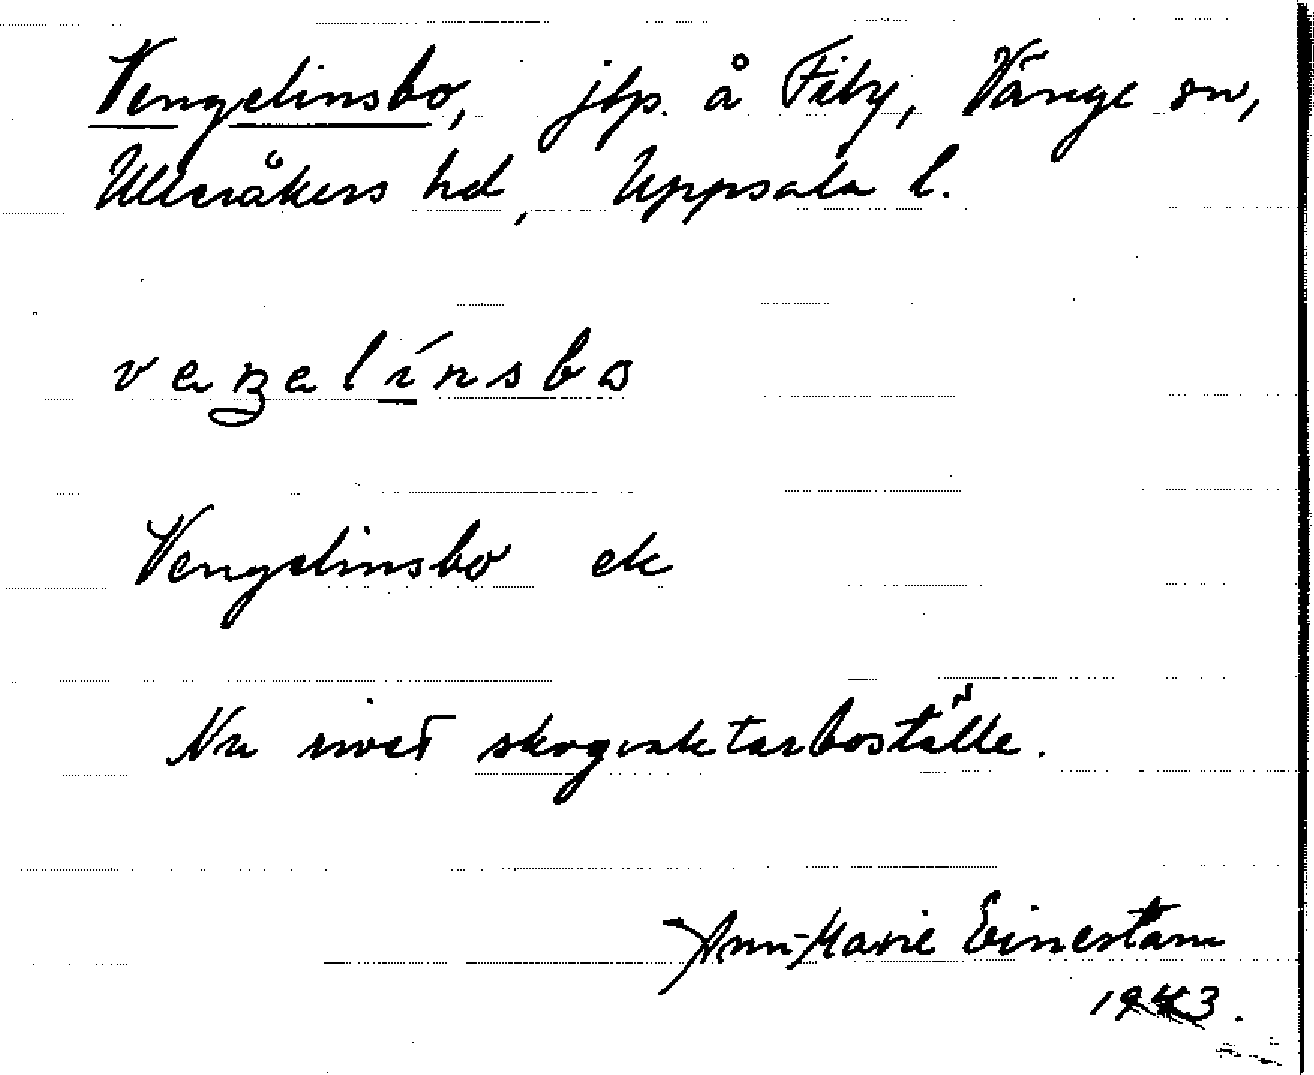 Vengelinsbo, jbp. å Fiby, Vänge sn,
Ulleråkers hd, Uppsala l.
Vengelinsbo ek
Nu rivet skogvaktarboställe.
Ann-Marie Einerstam
1943.